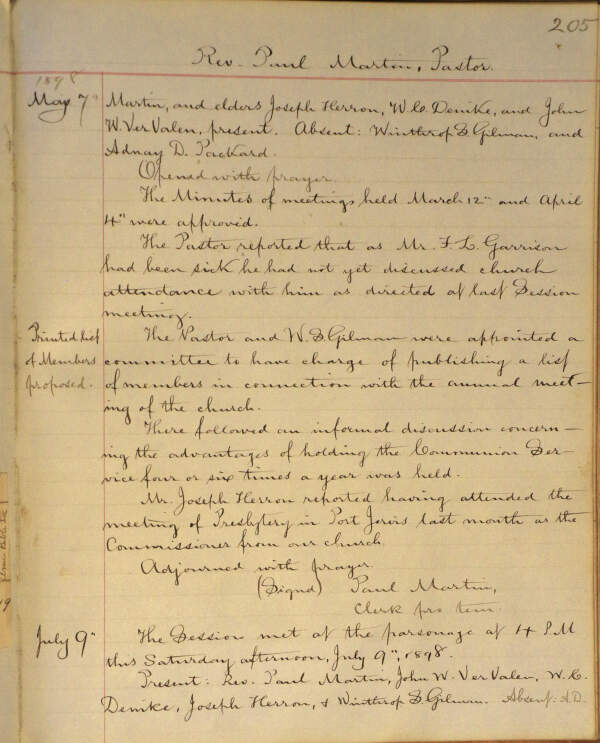 205
Rev. Paul Martin, Pastor.
1898
May 7" Martin, and elders Joseph Herron, W. C. Demke, and John
W. Ver Valen, present. Absent: Winthrop S. Gilman, and
Adnay D. Packard.
Opened with prayer.
The Minutes of meetings held March 12" and April
4" were approved.
The Pastor reported that as Mr. F. L. Garrison
had been sick he had not yet discussed church
attendance with him as directed at last Session
meeting.
Printed list
of Members
proposed.
The Pastor and W. S. Gilman were appointed a
committee to have charge of publishing a list
of members in connection with the annual meet-
ing of the church.
There followed an informal discussion concern-
ing the advantages of holding the Communion Ser-
vice four or six times a year was held.
Mr. Joseph Herron reported having attended the
meeting of Presbytery in Port Jervis last month as the
Commissioner from our church.
Adjourned with prayer.
(Signd) Paul Martin,
Clerk pro tem.
July 9" The Session met at the parsonage at 4 P.M
this Saturday afternoon, July 9", 1898.
Present: Rev. Paul Martin, John W. Ver Valen, W. C.
Demke, Joseph Herron, & Winthrop S. Gilman. Absent. A.D.